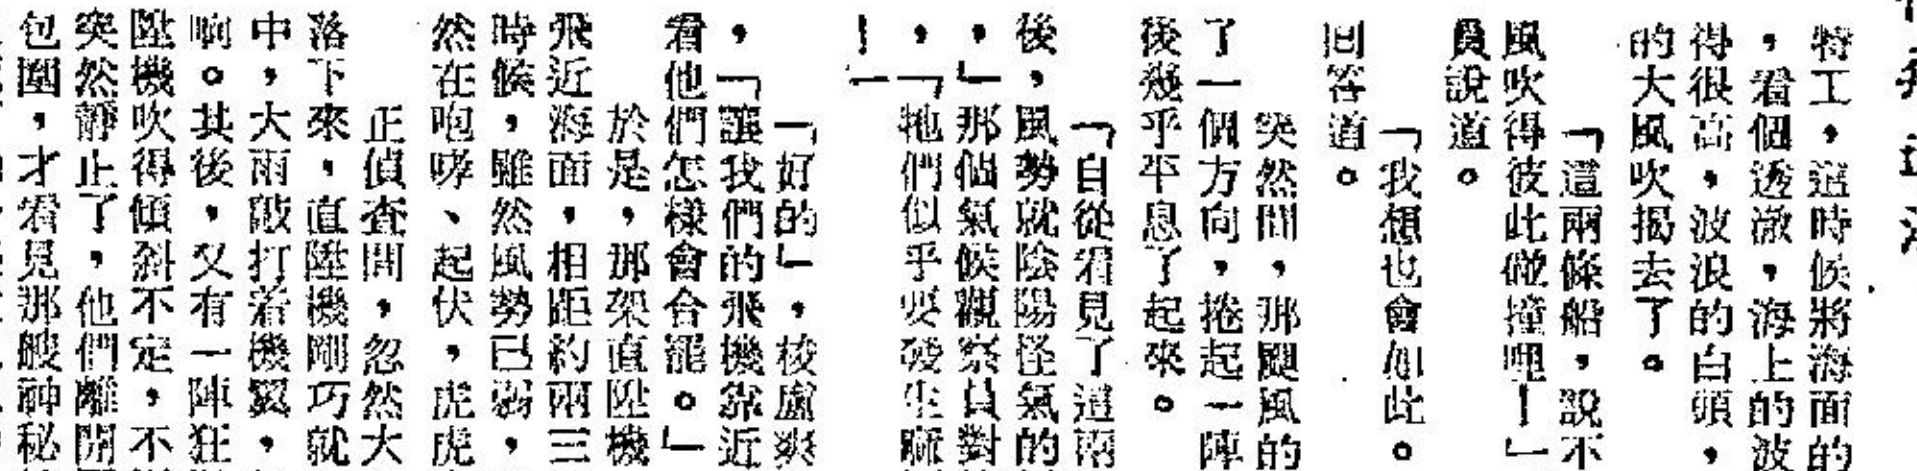 特工,這時候將海面的
,看個透澈,海上的波
得很高,波浪的白頭,
的大風吹揭去了。
「這兩條船,說不
風吹得彼此碰撞哩!」
員說道。
「我想也會如此。
回答道。
突然間,那颶風的
了一個方向,捲起一陣
後幾乎平息了起來。
「自從看見了這兩
後,風勢就陰陽怪氣的
,」那個氣候觀察員對
,「牠們似乎要發生麻
!」
「好的」,梭盧爽
,「讓我們的飛機靠近
看他們怎樣會合罷。」
於是,那架直陞機
飛近海面,相距約兩三
時候,雖然風勢已弱,
然在咆哮、起伏,虎虎
正偵查間,忽然大
落下來,直陞機剛巧就
中,大雨敲打着機翼,
响。其後,又有一陣狂
陞機吹得傾斜不定,不
突然靜止了,他們離開
包圍,才看見那艘神秘